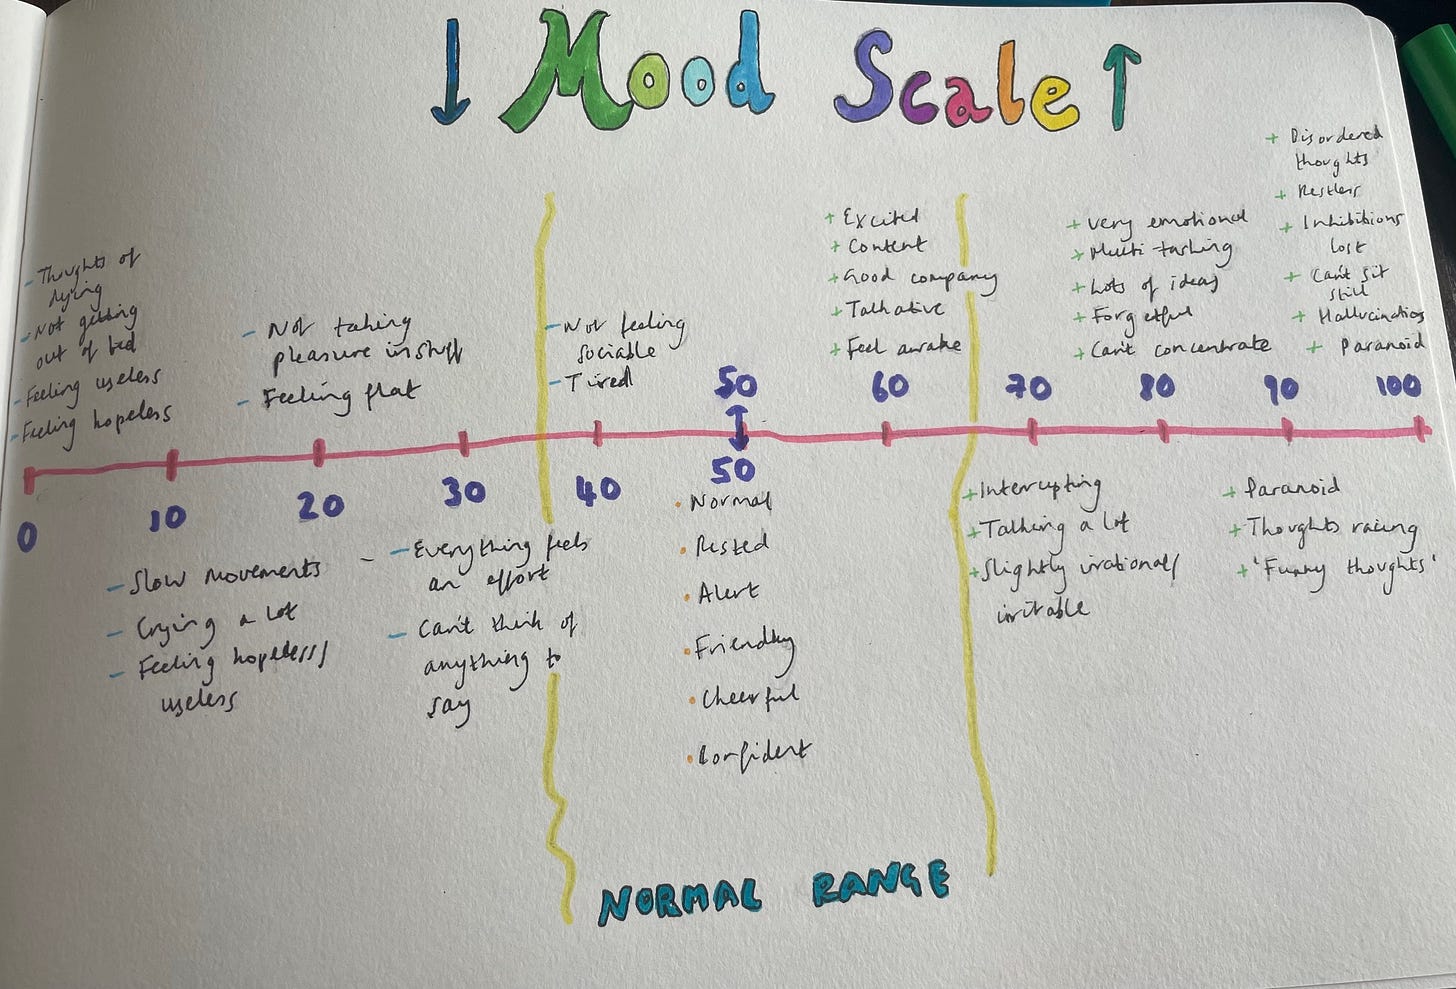 ↓ Mood Scale ↑
- Thoughts of
dying
- Not getting
out of bed
- Feeling useless
- Feeling hopeless
- Not taking
pleasure in stuff
- Feeling flat
- Not feeling
sociable
- Tired
+ Excited
+ Content
+ Good company
+ Talkative
+ Feel awake
+ Very emotional
+ Multi-tasking
+ Lots of ideas
+ Forgetful
+ Can't concentrate
+ Disordered
thoughts
+ Restless
+ Inhibitions
lost
+ Can't sit
still
+ Hallucinations
+ Paranoid
50 60 70 80 90 100
0 10 20 30 40 50
- Slow movements -
- Crying a lot
- Feeling hopeless/
useless
- Everything feels
an effort
- Can't think of
anything to
say
• Normal
• Rested
• Alert
• Friendly
• Cheerful
• Confident
+ Interrupting
+ Talking a lot
+ Slightly irrational/
irritable
+ Paranoid
+ Thoughts racing
+ 'Funny thoughts'
NORMAL RANGE